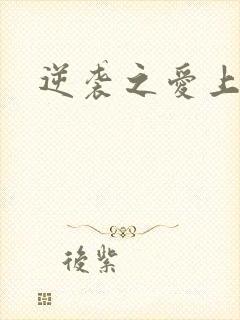 逆袭之愛上
後紫